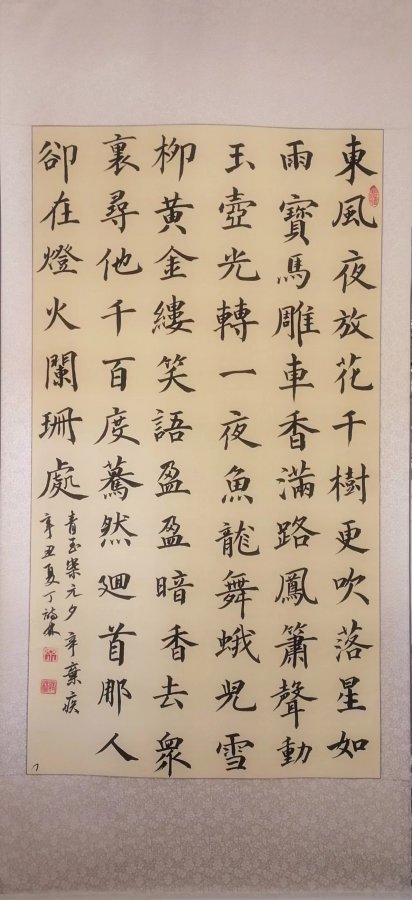 東風夜放花千樹更吹落星如
雨寶馬雕車香滿路鳳簫聲動
玉壺光轉一夜魚龍舞蛾兒雪
柳黃金縷笑語盈盈暗香去眾
裏尋他千百度驀然廻首那人
卻在燈火闌珊處
青玉案元夕辛棄疾
辛丑夏丁